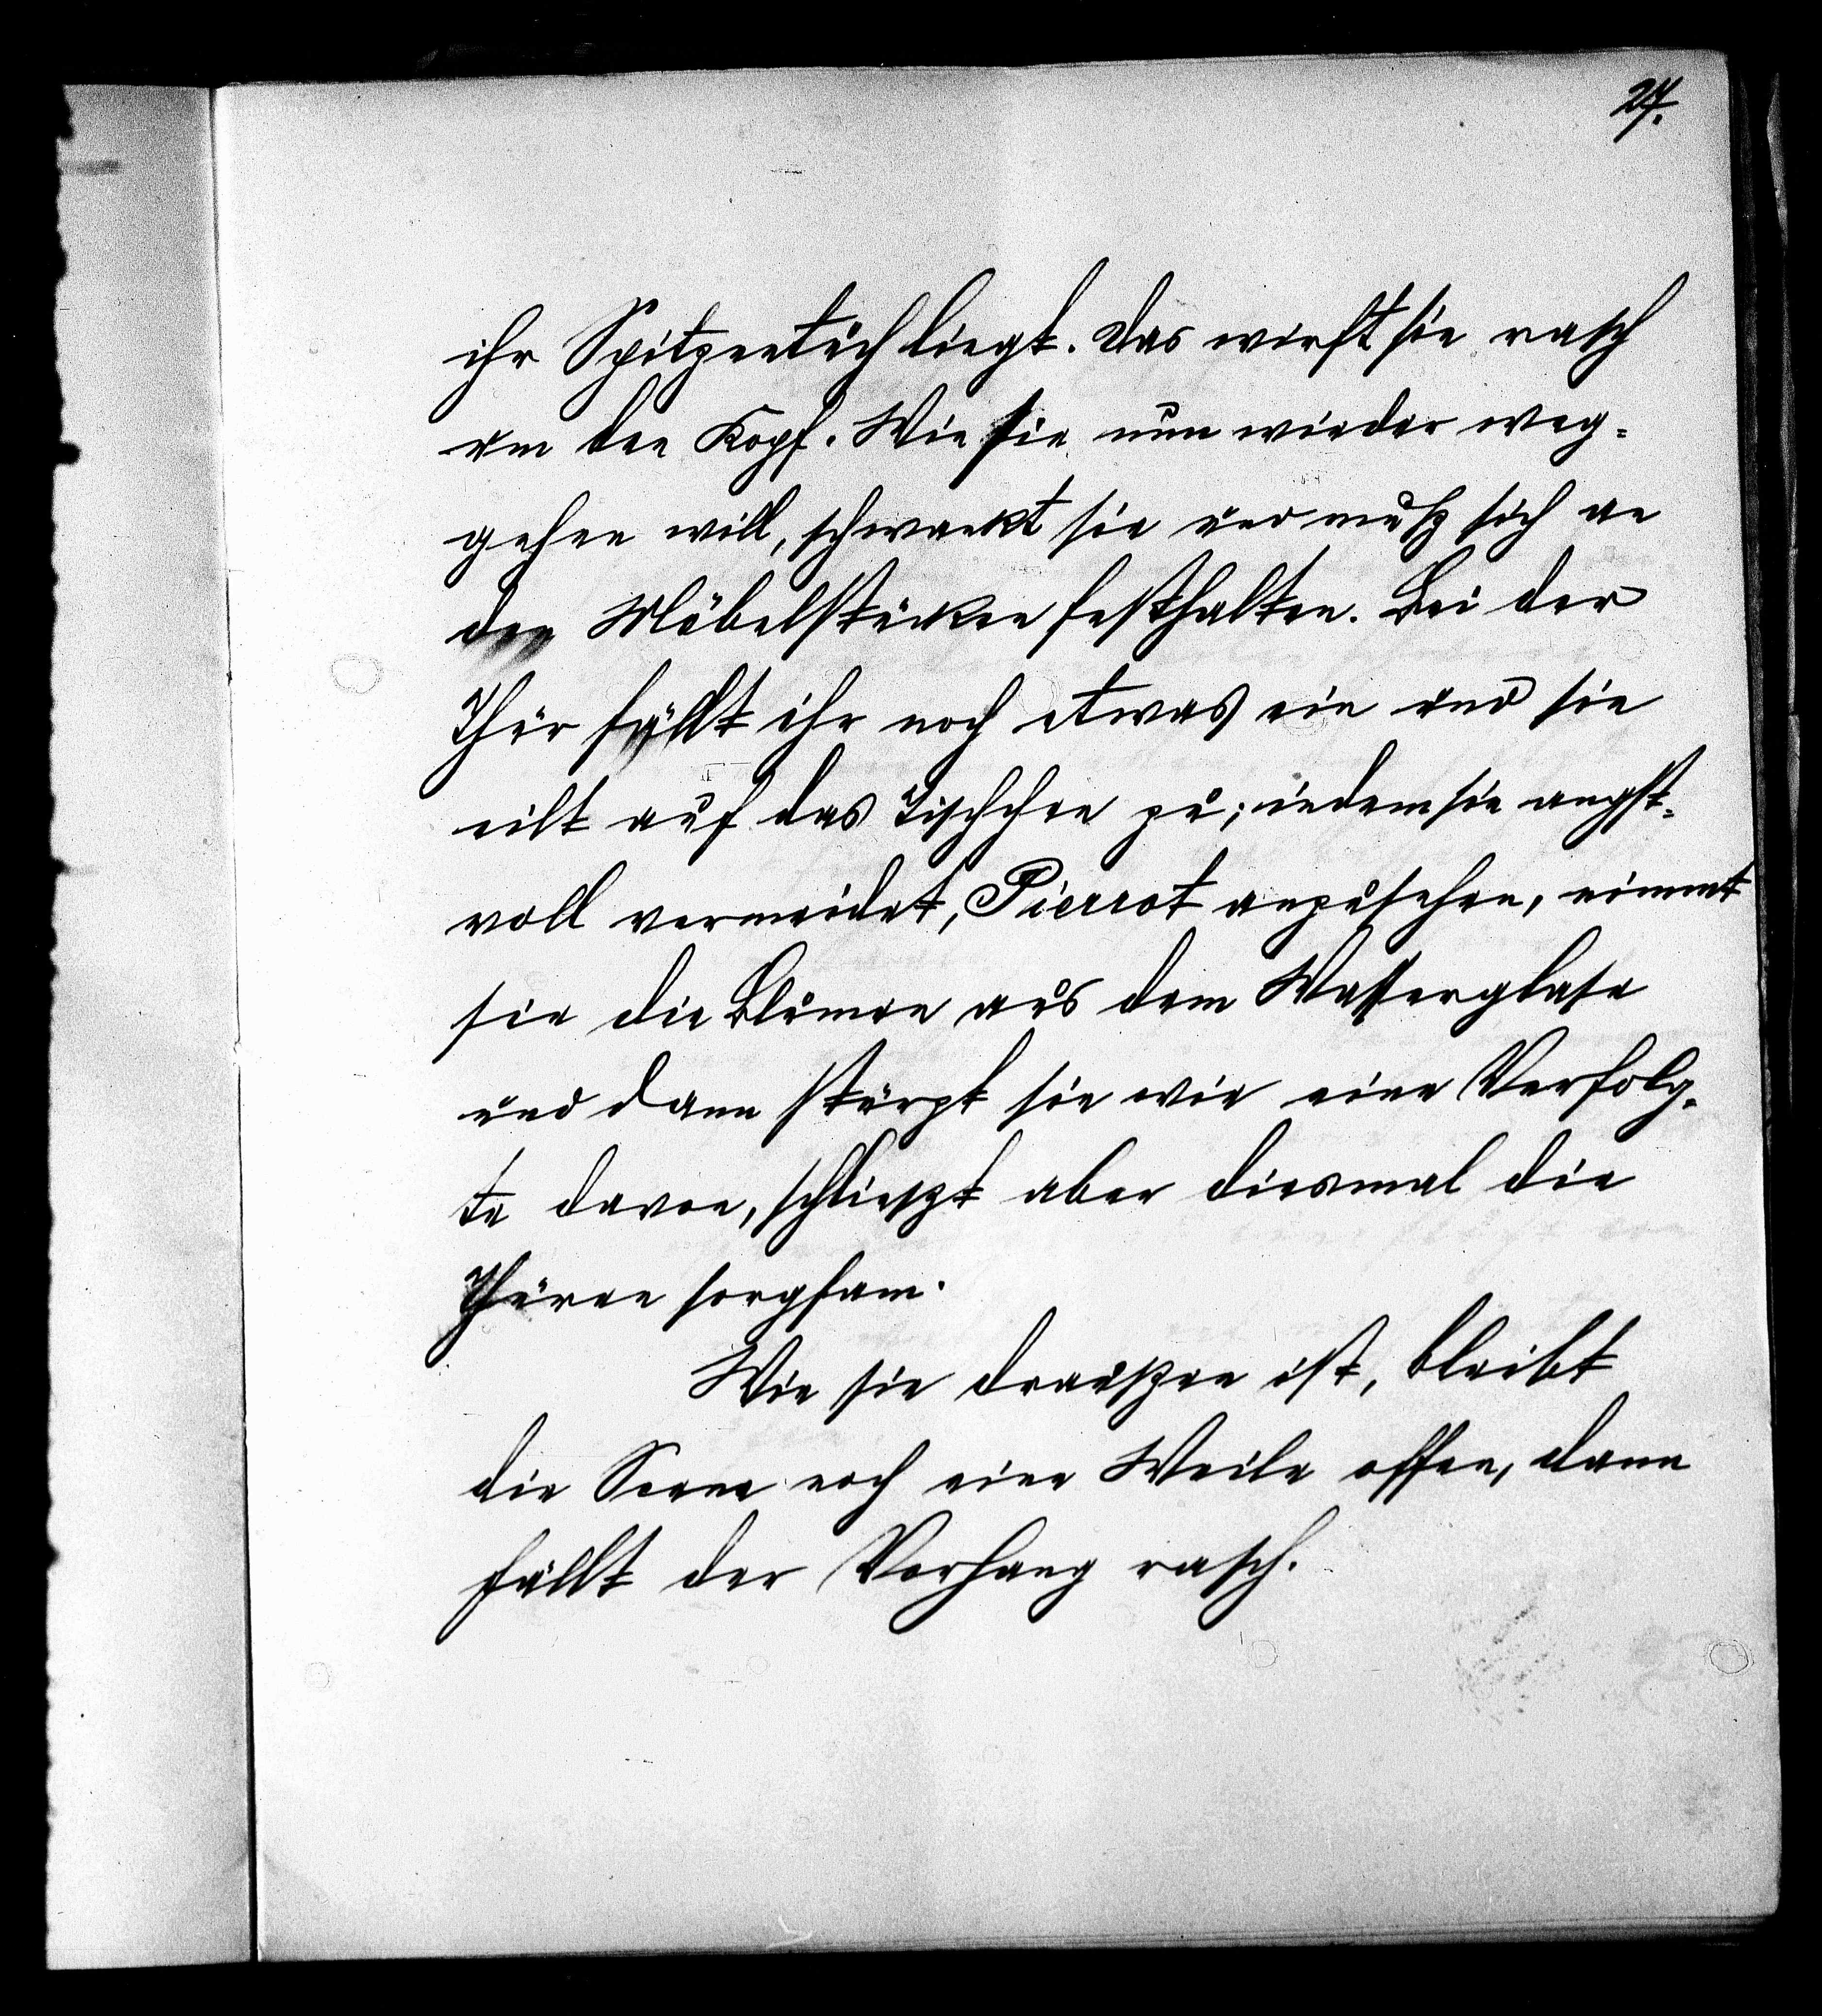 27.
ihr Spitzentuch liegt. Das wirft sie rasch
um den Kopf. Wie sie nun wieder weg-
gehen will, schwankt sie und muß sich an
den Möbelstücken festhalten. Bei der
Thür fällt ihr noch etwas ein und sie
eilt auf das Tischchen zu; indem sie angst-
voll vermeidet, Pierrot anzusehen, nimmt
sie die Blumen aus dem Wasserglase
und dann stürzt sie wie eine Verfolg-
te davon, schließt aber diesmal die
Thüren sorgsam.
Wie sie draußen ist, bleibt
die Scene noch eine Weile offen, dann
fällt der Vorhang rasch.